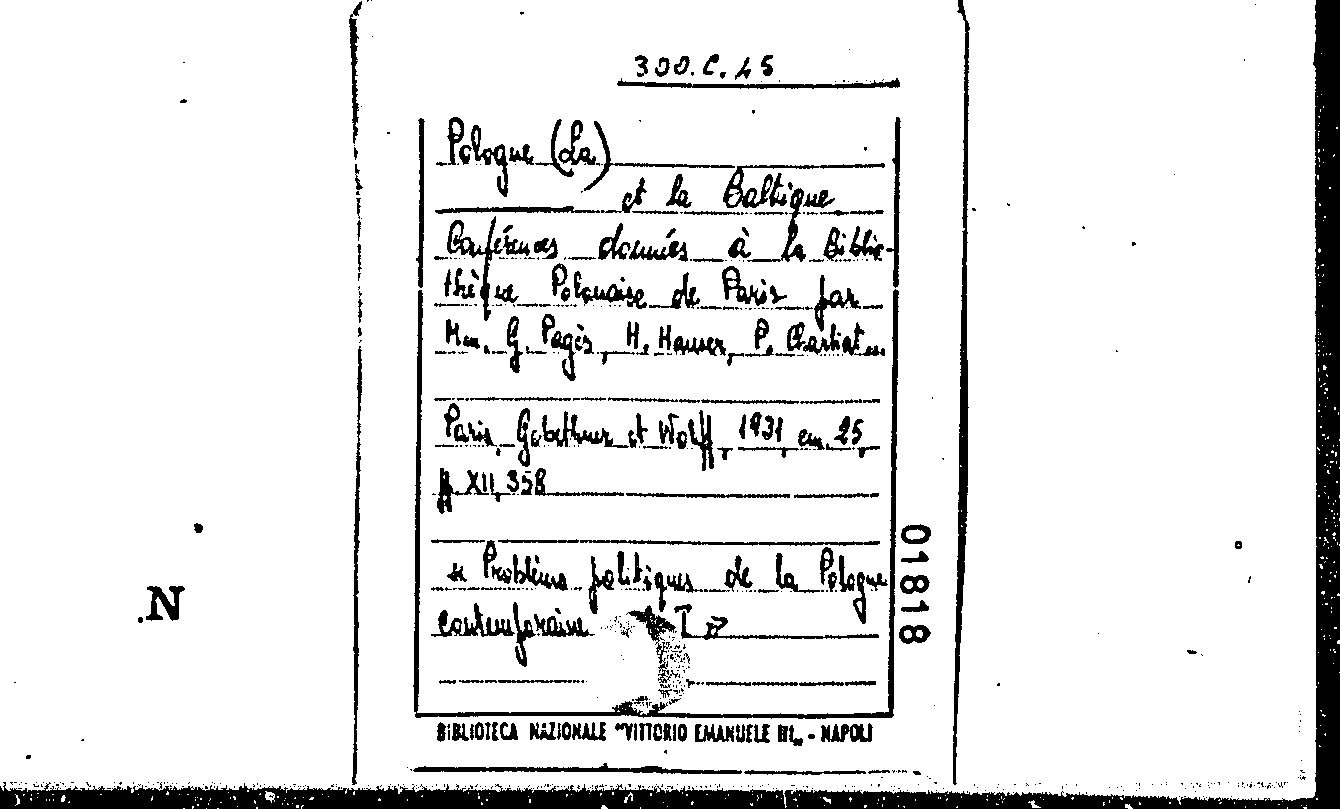 300.C.45
Pologne (La)
et la Baltique
Conférences données à la Biblio-
thèque Polonaise de Paris par
Mm. G. Pagès, H. Hauser, P. Chasliat...
Paris, Gebethner et Wolff, 1931, cm. 25,
pp. XII, 358
Problèms politiques de la Pologne
contemporaine I
01818
.N
BIBLIOTECA NAZIONALE "VITTORIO EMANUELE III„ - NAPOLI